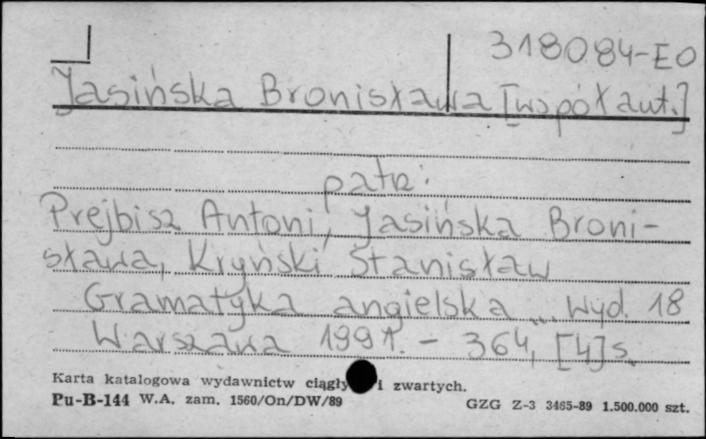 318084-EO
Jasińska Bronisława [współaut.]
patrz:
Prejbisz Antoni, Jasińska Broni-
sława, Kryński Stanisław
Gramatyka angielska ... Wyd. 18
Warszawa 1991. - 364, [4] s.
Karta katalogowa wydawnictw ciągły i zwartych.
Pu-B-144 W.A. zam. 1560/On/DW/89
GZG Z-3 3465-89 1.500.000 szt.